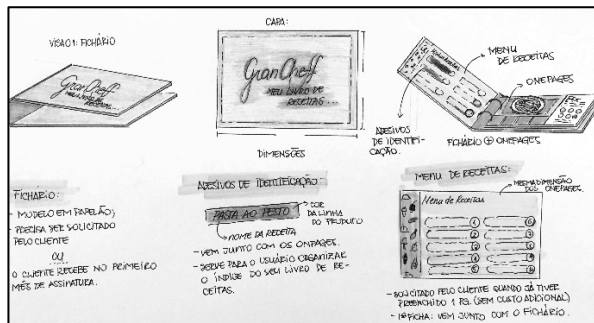 VISÃO 1: FICHÁRIO
GranCheff
MEU LIVRO DE
RECEITAS...
CAPA:
GranCheff
MEU LIVRO DE
RECEITAS...
DIMENSÕES
MENU
DE RECEITAS
ONEPAGES
ADESIVOS
DE IDENTIFI-
CAÇÃO.
FICHÁRIO + ONEPAGES
FICHÁRIO:
- MODELO EM PAPELÃO;
- PRECISA SER SOLICITADO
PELO CLIENTE
OU
O CLIENTE RECEBE NO PRIMEIRO
MÊS DE ASSINATURA.
ADESIVOS DE IDENTIFICAÇÃO
PASTA AO PESTO
COR
DA LINHA
DO PRODUTO
NOME DA RECEITA
- VEM JUNTO COM OS ONEPAGES.
- SERVE PARA O USUÁRIO ORGANIZAR
O ÍNDICE DO SEU LIVRO DE RE-
CEITAS.
MENU DE RECEITAS:
MESMA DIMENSÃO
DOS ONEPAGES.
Menu de Receitas
- SOLICITADO PELO CLIENTE QUANDO JÁ TIVER
PREENCHIDO 1 PG. (SEM CUSTO ADICIONAL)
- 1ª FICHA: VEM JUNTO COM O FICHÁRIO.